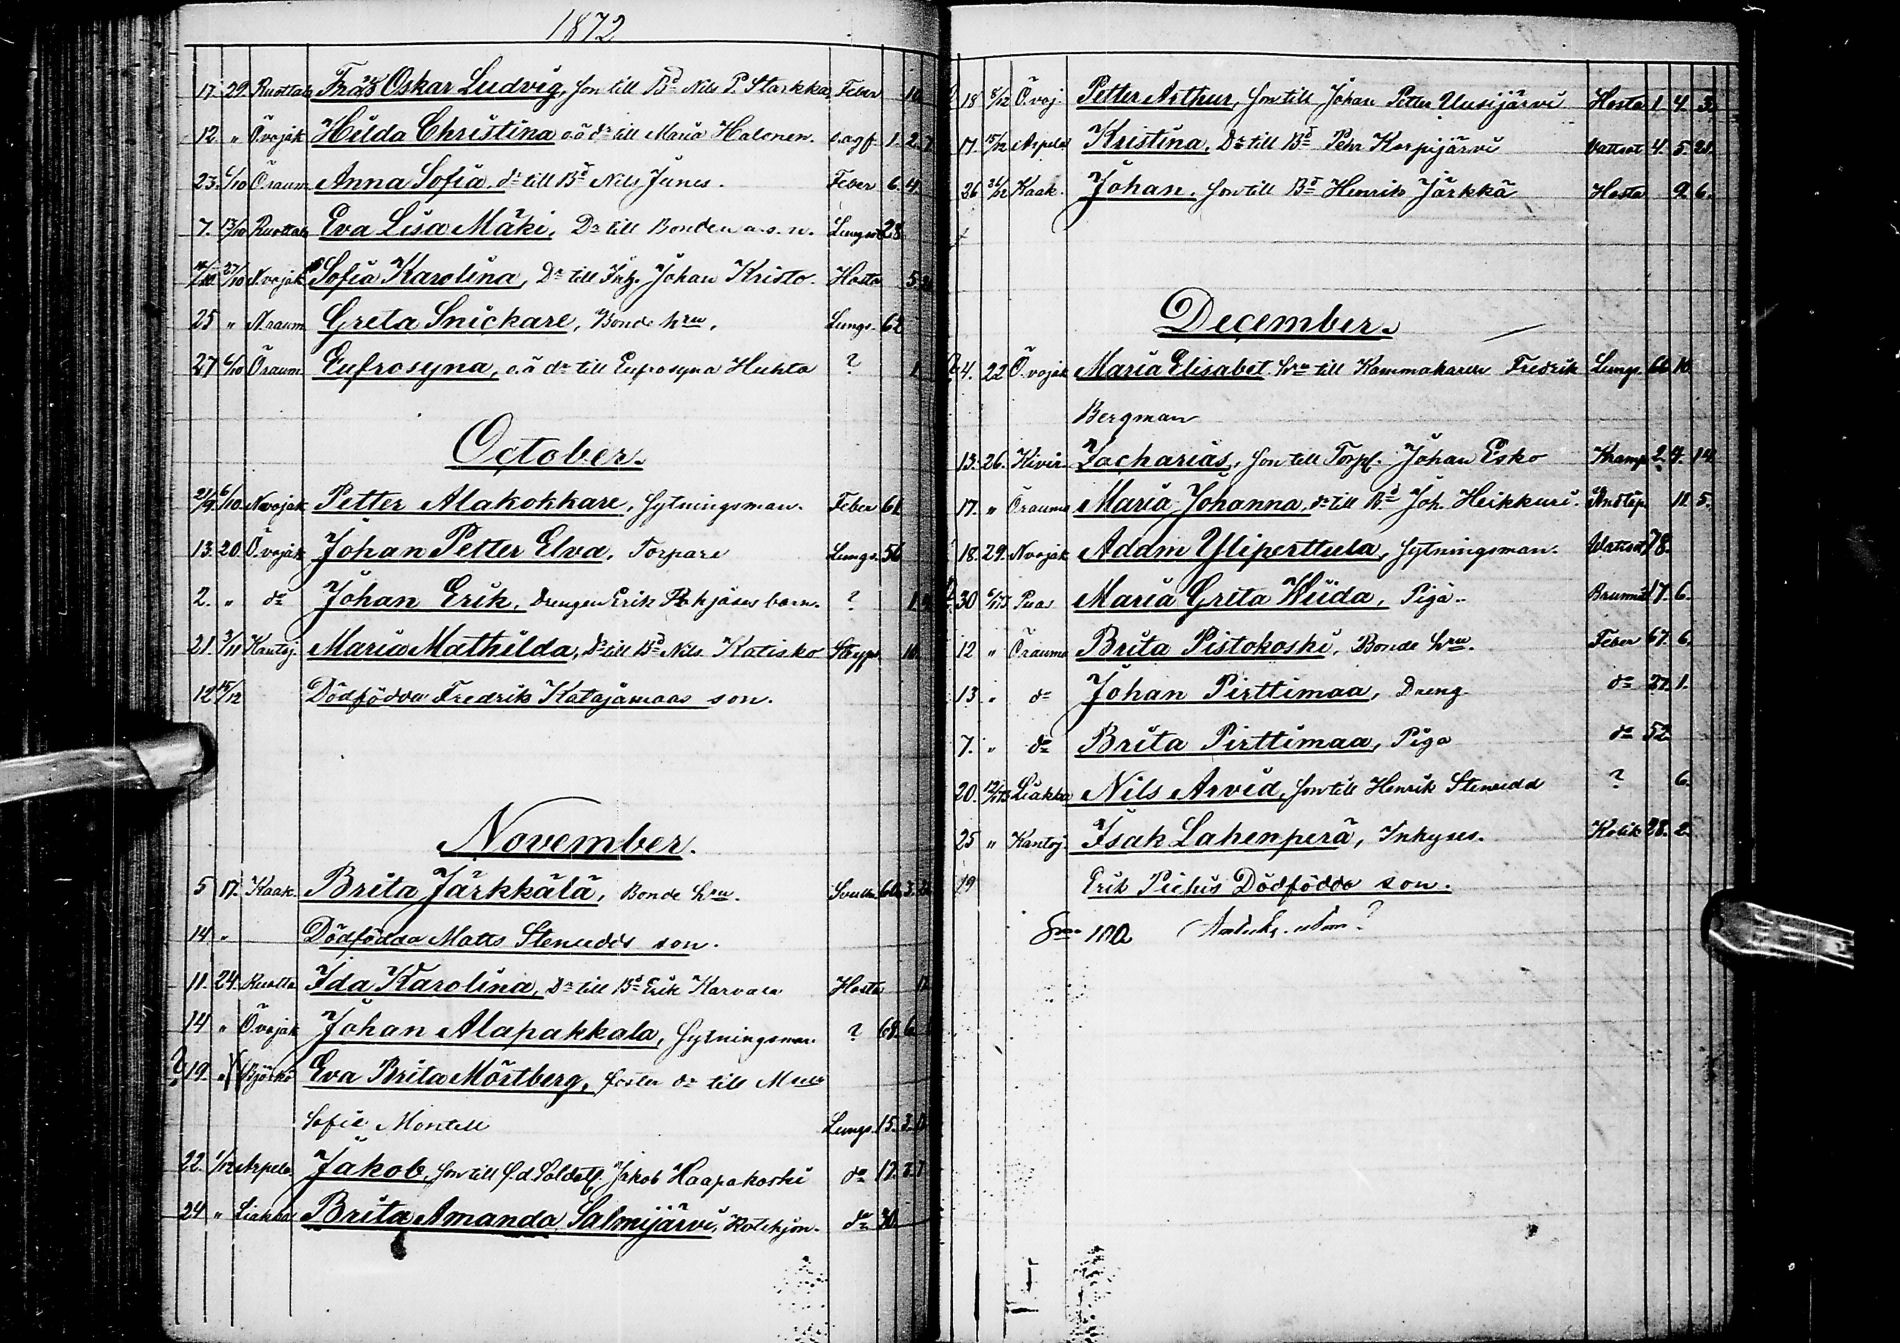 1872
17 29. Ruottala Frds Oskar Ludvig, son till Bd Nils P. Starkka, Feber 10
12 " Ö.vojak Hilda Christina o.ä dr till Maria Halonen. 1. 2.
23 6/10 Ö raum Anna Sofia, dr till Bd Nils Junes. Feber 6. 4.
7. 13/10 Ruottala Eva Lisa Mäki, Dr till Bonden a. s. n. Lungs 28
27/10 N.vojak Sofia Karolina, Dr till Inh. Johan Kristo. Hosta 5
25 " N.raum Greta Snickare, Bonde hru. Lungs. 62
27 6/10 Öraum Eufrosyna, o.ä dr till Eufrosyna Huhta ? 1
October.
21/9 6/10 N.vojak Petter Alakokkare, Sytningsman. Feber 61
13. 20. Ö.vojak Johan Petter Elva, Torpare Lungs. 56
2. " do Johan Erik, drengen Erik barn. ? 1
21. 3/11 Kantoj. Maria Mathilda, Dr till Bd Nils Katisko 10.
12 15/12 Dödfödda Fredrik Katajamaas son.
November.
5 17. Kaak. Brita Järkkälä, Bonde hru. 3.
14 " Dödfödda Matts Stenudds son.
11. 24. Ruotta Ida Karolina, Dr till Bd Erik Karvala Hosta
14 " Ö.vojak Johan Alapakkala, Sytningsman ? 68. 6
19. " Björkö Eva Brita Mörtberg, foster dr till
Sofie Montell Lungs. 15. 3.
22. 1/12 Arpela Jakob, son till f.d Soldat. Jakob Haapakoski do 17.
24 " Liakka Brita Amanda Salmijärvi, Rotehjon. do 30
18 8/12 Ö.voj. Petter Arthur, son till Johan Petter Uusijärvi Hosta 1. 4. 3.
17. 15/12 Arpela Kristina, Dr till Bd Pehr Korpijärvi Vattsot 4. 5. 21.
26 26/12 Kaak. Johan, son till Bd Henrik Järkkä Hosta 9. 6.
December.
4. 22 Ö.vojak Maria Elisabet hru till Kammakaren Fredrik Lungs. 66 10
Bergman
13. 26. Kivir. Zacharias, son till Torp. Johan Esko Kramp 2. 9. 14.
17. " Öraumo Maria Johanna, dr till Bd Joh. Heikkuri. Andtäp. 11. 5.
18. 29. N.vojak Adam Yliperttula, Sytningsman. Wattsot 78.
30 6/1 Puas Maria Greta Wiida, Piga. 17. 6.
12 " Öraumo Brita Pistokoski, Bonde hru. Feber 67. 6.
13. " do Johan Pirttimaa, Dreng do 27. 1.
7. " do Brita Pirttimaa, Piga do 52
20. 12/1 Liakka Nils Arvid, son till Henrik Stenudd ? 6.
25 " Kantoj. Isak Lahenperä, Inhyses. Kolik 28. 2.
19 Erik Pichis Dödfödda son.
100